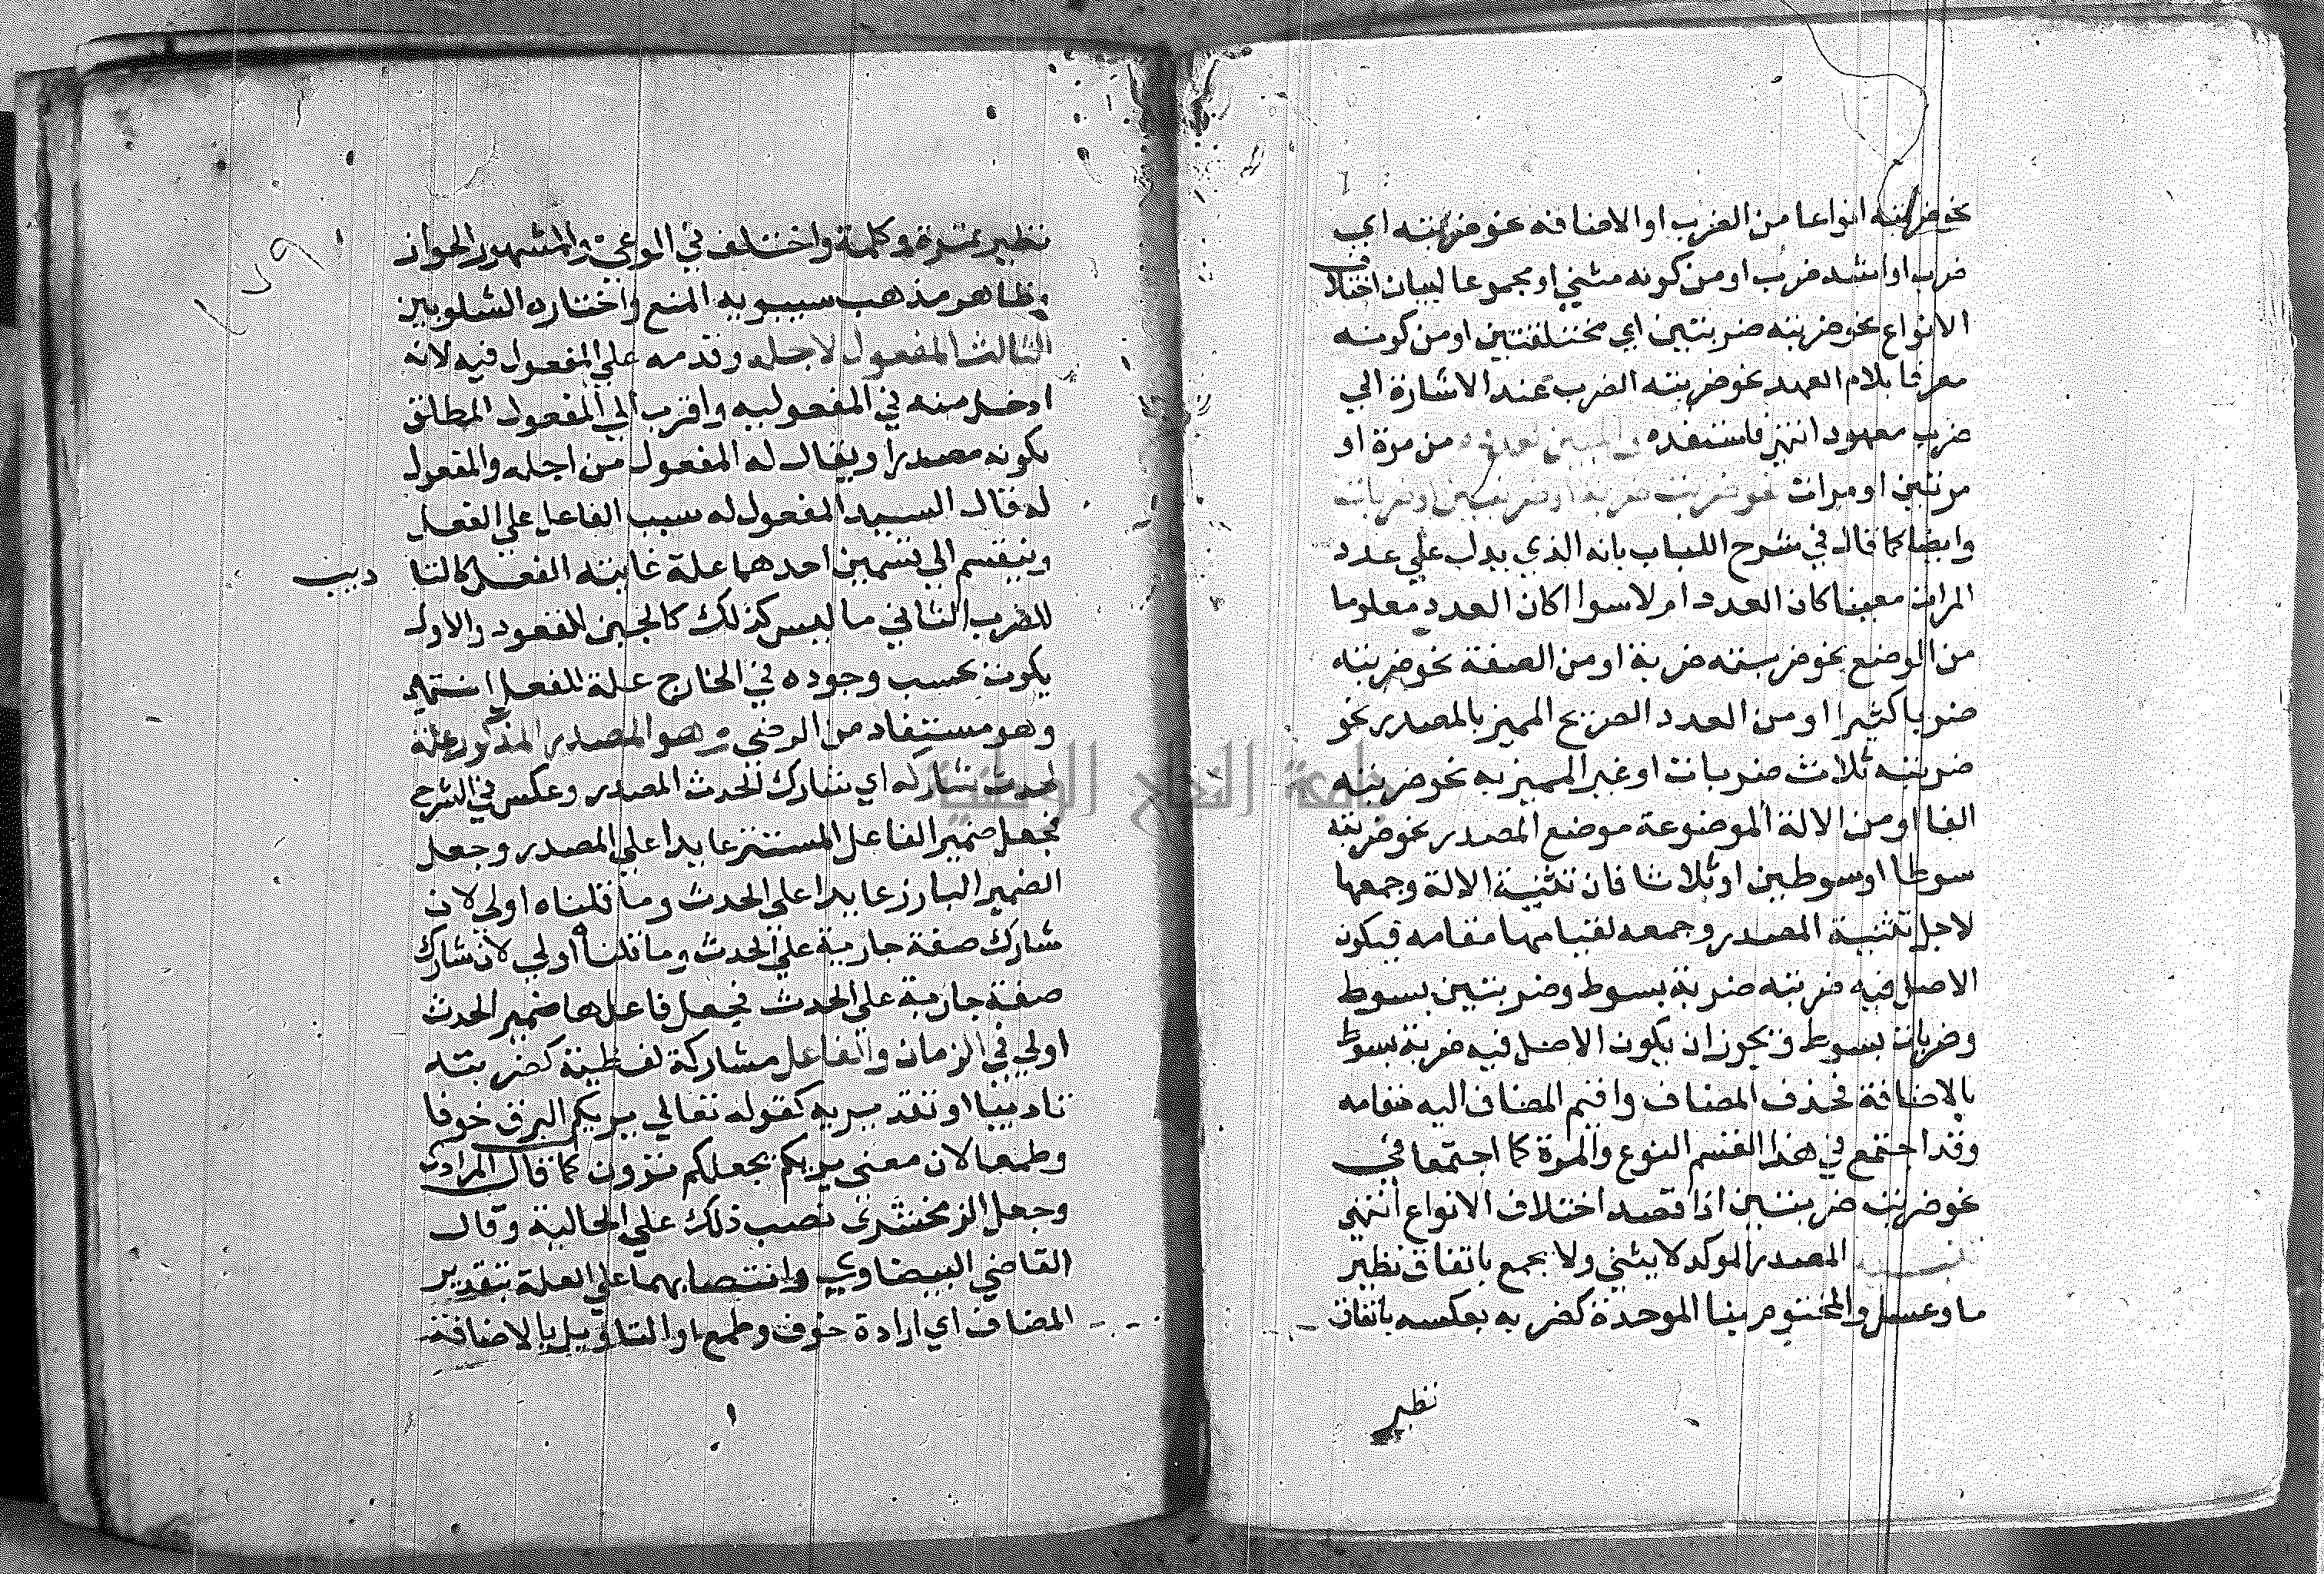 نحو ضربته انواعا من الضرب او الاضافه نحو ضربته اي
ضرب او اشد ضرب او من كونه مثني او مجموعا لبيان اختلاف
الانواع نحو ضربته ضربتين اي مختلفتين او من كونه
معرفا بلام العهد نحو ضربته الضرب عند الاشارة الي
ضرب معهود انتهي فاستفده والمبين لعدده من مرة او
مرتين او مرات نحو ضربت ضربة او ضربتين او ضربات
وايضا كما قال في شرح اللباب بانه الذي يدل علي عدد
المرات معينا كان العدد ام لا سوا اكان العدد معلوما
من الوضع نحو ضربته ضربة او من الصفة نحو ضربته
ضربا كثيرا او من العدد الصريح المميز بالمصدر نحو
ضربته ثلاث ضربات او غير المميز به نحو ضربته
الفا او من الالة الموضوعة موضع المصدر نحو ضربته
سوطا او سوطين او ثلاثا فان تثنية الالة وجمعها
لاجل تثنية المصدر وجمعه لقيامها مقامه فيكون
الاصل فيه ضربته ضربة بسوط وضربتين بسوط
وضربات بسوط ويجوز ان يكون الاصل فيه ضربة بسوط
بالاضافة فحذف المضاف واقيم المضاف اليه مقامه
وقد اجتمع في هذا القسم النوع والمرة كما اجتمعا في
نحو ضربت ضربتين اذا قصد اختلاف الانواع انتهي
تنبيه المصدر الموكد لا يثني ولا يجمع باتفاق نظير
ما وعسل والمختوم بتا الموحدة كضربه بعكسه باتفاق
نظير
١٧٩
نظير تمرة وكلمة واختلف في النوعي والمشهور الجواز
وظاهر مذهب سيبويه المنع واختاره الشلوبين
الثالث المفعول لاجله وقدمه علي المفعول فيه لانه
ادخل منه في المفعوليه واقرب الي المفعول المطلق
بكونه مصدرا ويقال له المفعول من اجله والمفعول
له قال السيد المفعول له سبب الفاعل علي الفعل
وينقسم الي قسمين احدهما علة غايته الفعل كالتا ديب
للضرب الثاني ما ليس كذلك كالجبن للقعود والاول
يكون بحسب وجوده في الخارج علة للفعل انتهي
وهو مستفاد من الرضي وهو المصدر المذكور علة
لحدث شاركه اي شارك الحدث المصدر وعكس في الشرح
فجعل ضمير الفاعل المستتر عايدا علي المصدر وجعل
الضمير البارز عايدا علي الحدث وما قلناه اولي لان
شارك صفة جارية علي الحدث وما قلنا اولي لان شارك
صفة جارية علي الحدث فجعل فاعلها ضمير الحدث
اولي في الزمان والفاعل مشاركة لفظية كضربته
تاديبا او تقديرية كقوله تعالي يريكم البرق خوفا
وطمعا لان معني يريكم يجعلكم ترون كما قال المرادي
وجعل الزمخشري نصب ذلك علي الحالية وقال
القاضي البيضاوي وانتصابهما علي العلة بتقدير
المضاف اي ارادة خوف وطمع او التاويل بالاضافة
جامعة النجاح الوطنية